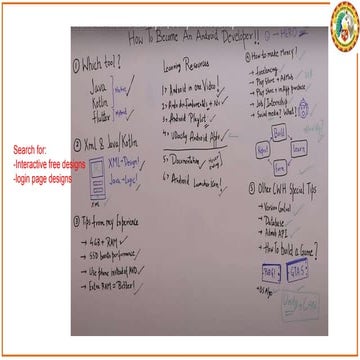 How To Become An Android Developer!! → HERO
① Which tool?
Java
Kotlin
Flutter
② Xml & Java/Kotlin
XML → Design!
Java → Logic!
XML
③ Tips from my Experience
→ 4GB+ RAM
→ SSD boosts performance
→ Use phone instead of AVD
→ Extra RAM = Better!
Learning Resources
1→ Android in one Video!
2→ Android Fundamentals
3→ Android Playlist
4→ Udacity Android Apps
5→ Documentation
6→ Android
④ How to make Money?
→ freelancing
→ Play Store + AdMob
→ Play Store + in App purchase
→ Job/Internship
→ Social media?
Build
Learn
⑤ Other CWH Special Tips
→ Version Control
→ Database
→ Admob API
→ How To build a Game?
Unity
Search for:
-Interactive free designs
-login page designs